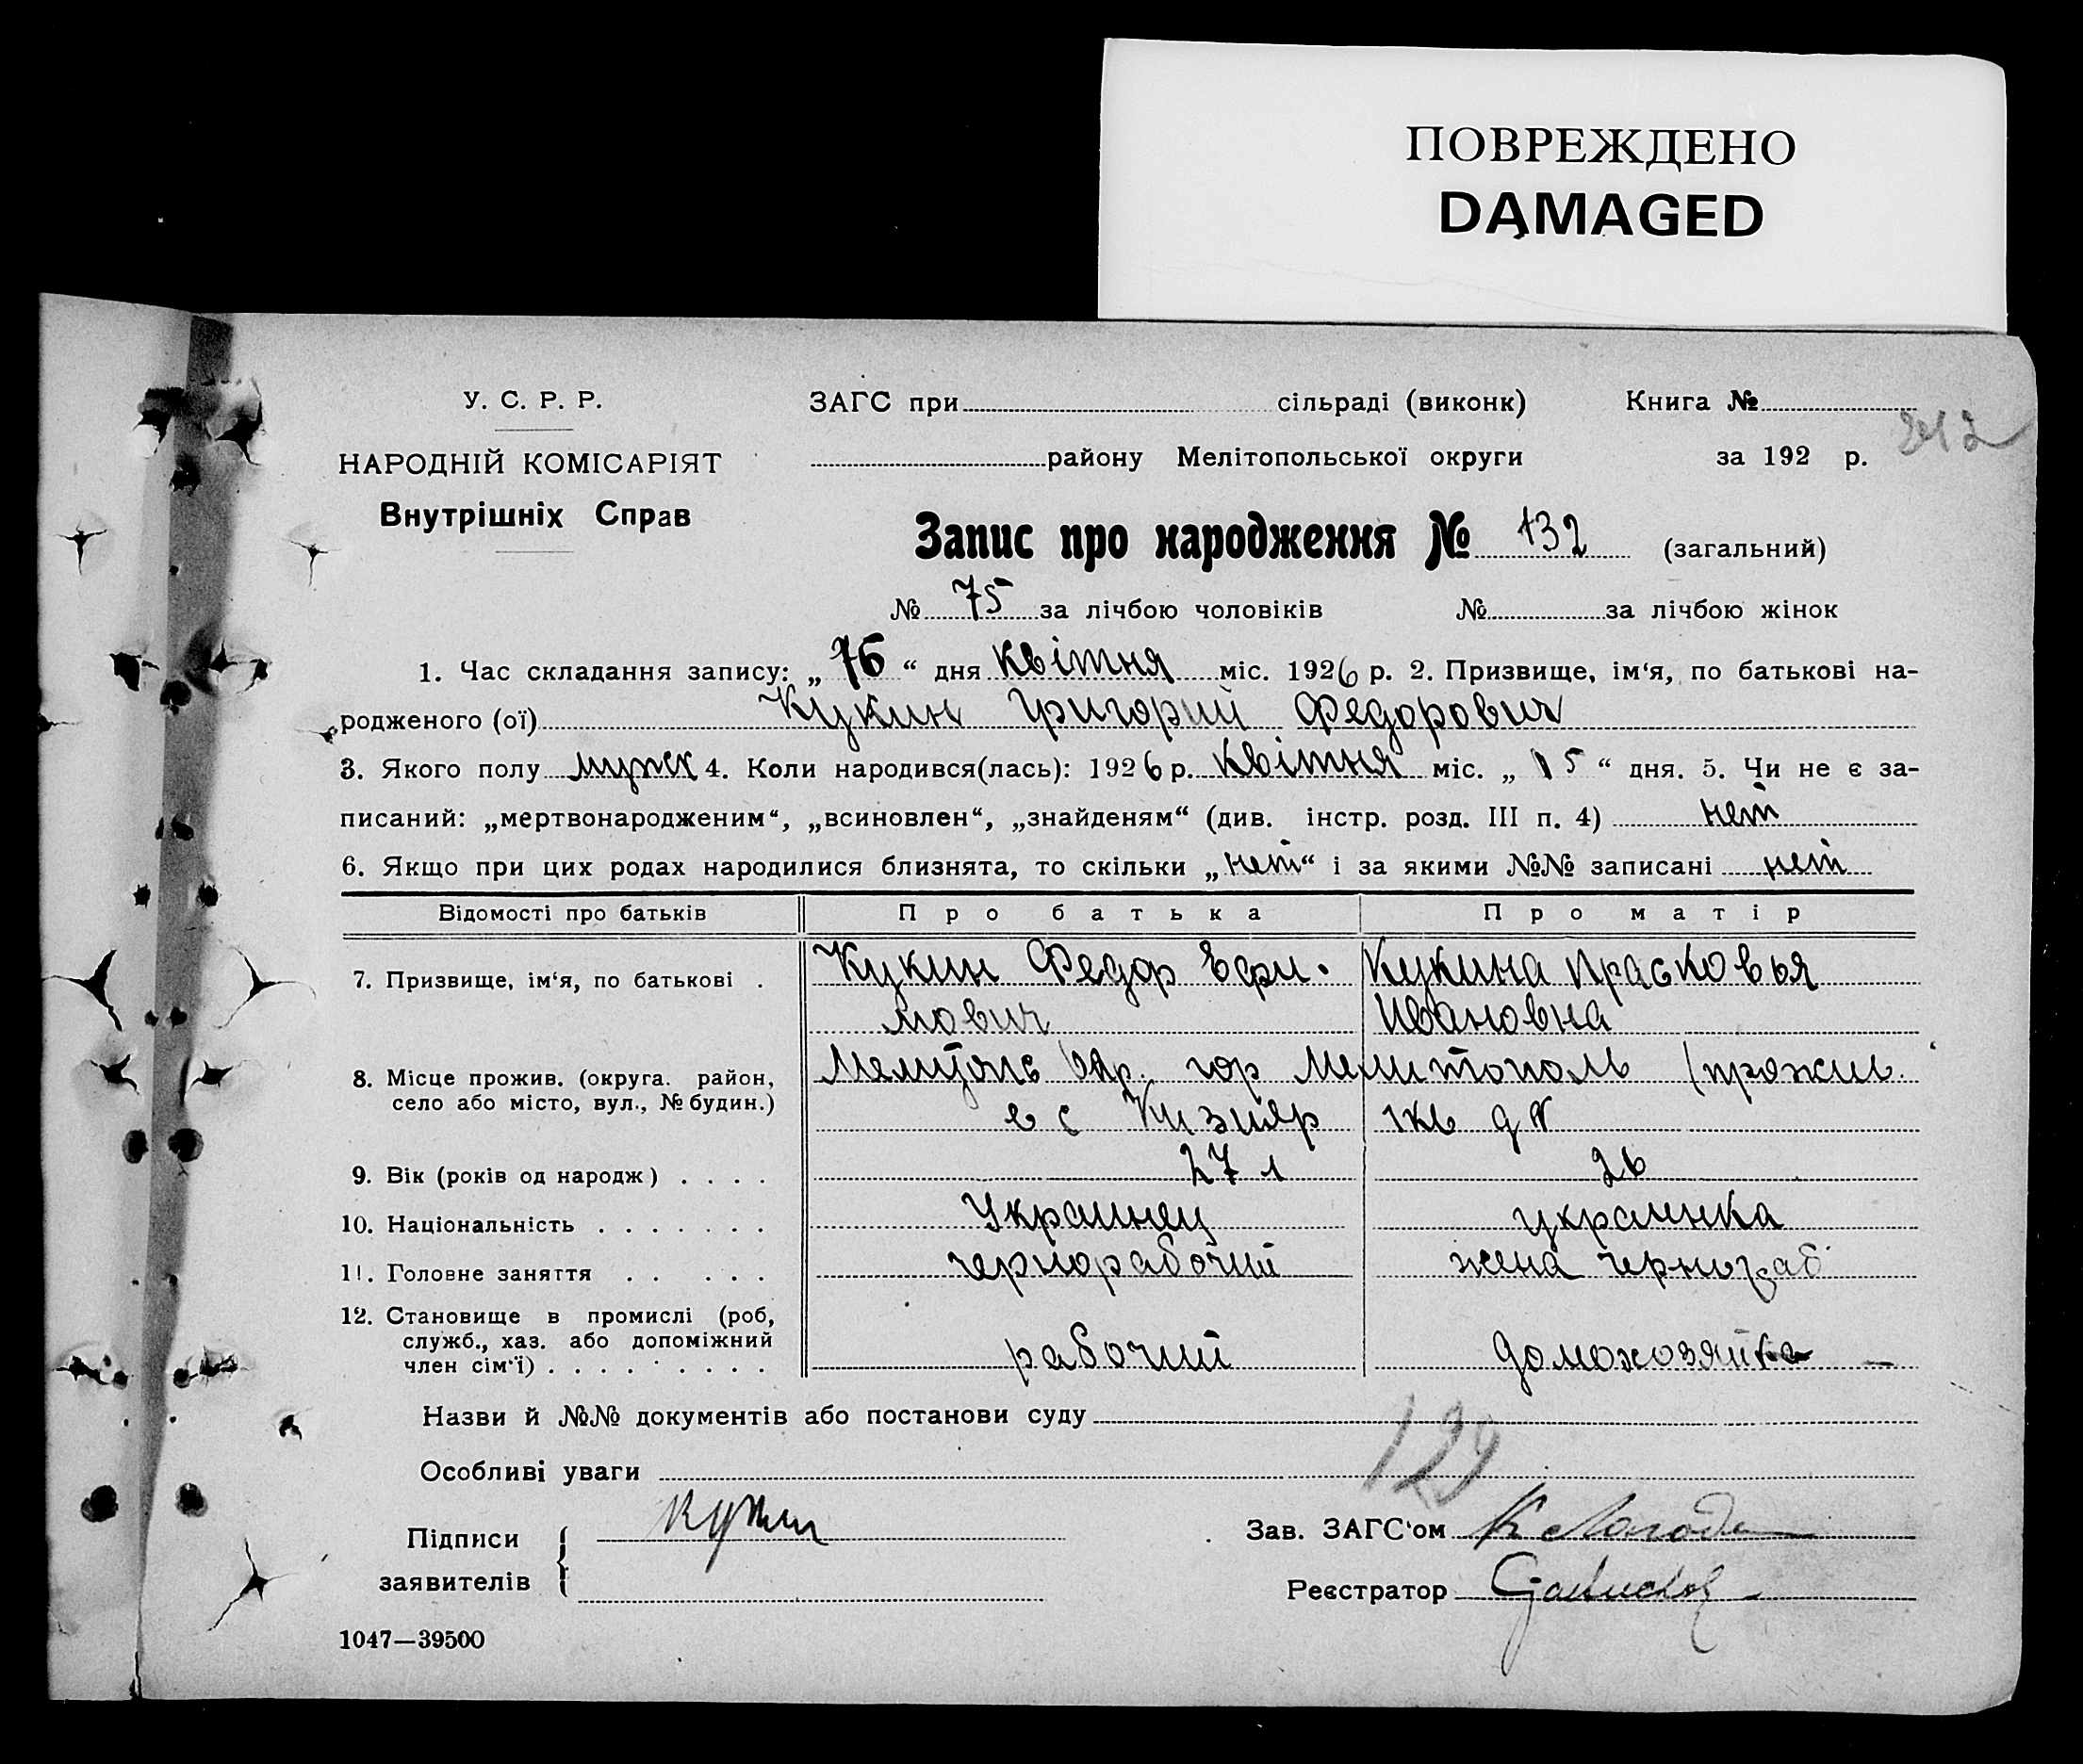 ПОВРЕЖДЕНО
DAMAGED
У. С. Р. Р.
ЗАГС при сільраді (виконк) Книга №
НАРОДНІЙ КОМІСАРІЯТ
району Мелітопольської округи за 192 р.
Внутрішніх Справ
Запис про народження № 132 (загальний)
№ 75 за лічбою чоловіків № за лічбою жінок
1. Час складання запису: „ “ дня квітня міс. 1926 р. 2. Призвище, ім‘я, по батькові на-
родженого (ої) Кукин Григорий Федорович
3. Якого полу мужск 4. Коли народився(лась): 1926 р. квітня міс. „ 15 “ дня. 5. Чи не є за-
писаний: „мертвонародженим“, „всиновлен“, „знайденям“ (див. інстр. розд. III п. 4) нет
6. Якщо при цих родах народилися близнята, то скільки „нет“ і за якими №№ записані нет
Відомості про батьків Про батька Про матір
7. Призвище, ім‘я, по батькові . Кукин Федор Ефи- Кукина Прасковья
мович Ивановна
8. Місце прожив. (округа. район, село або місто, вул., № будин.) Окр. гор Мелитополь (прожив.
в с Кизияр
9. Вік (років од народж) . . . . 27 л 26
10. Національність . . . . . . . Украинец украинка
11. Головне заняття . . . . . чернорабочий жена чернораб
12. Становище в промислі (роб,
служб., хаз. або допоміжний
член сім‘ї) . . . . . . . . . рабочий домохозяйка
Назви й №№ документів або постанови суду
129
Особливі уваги
Підписи Кукин Зав. ЗАГС‘ом
заявителів Реєстратор
1047—39500